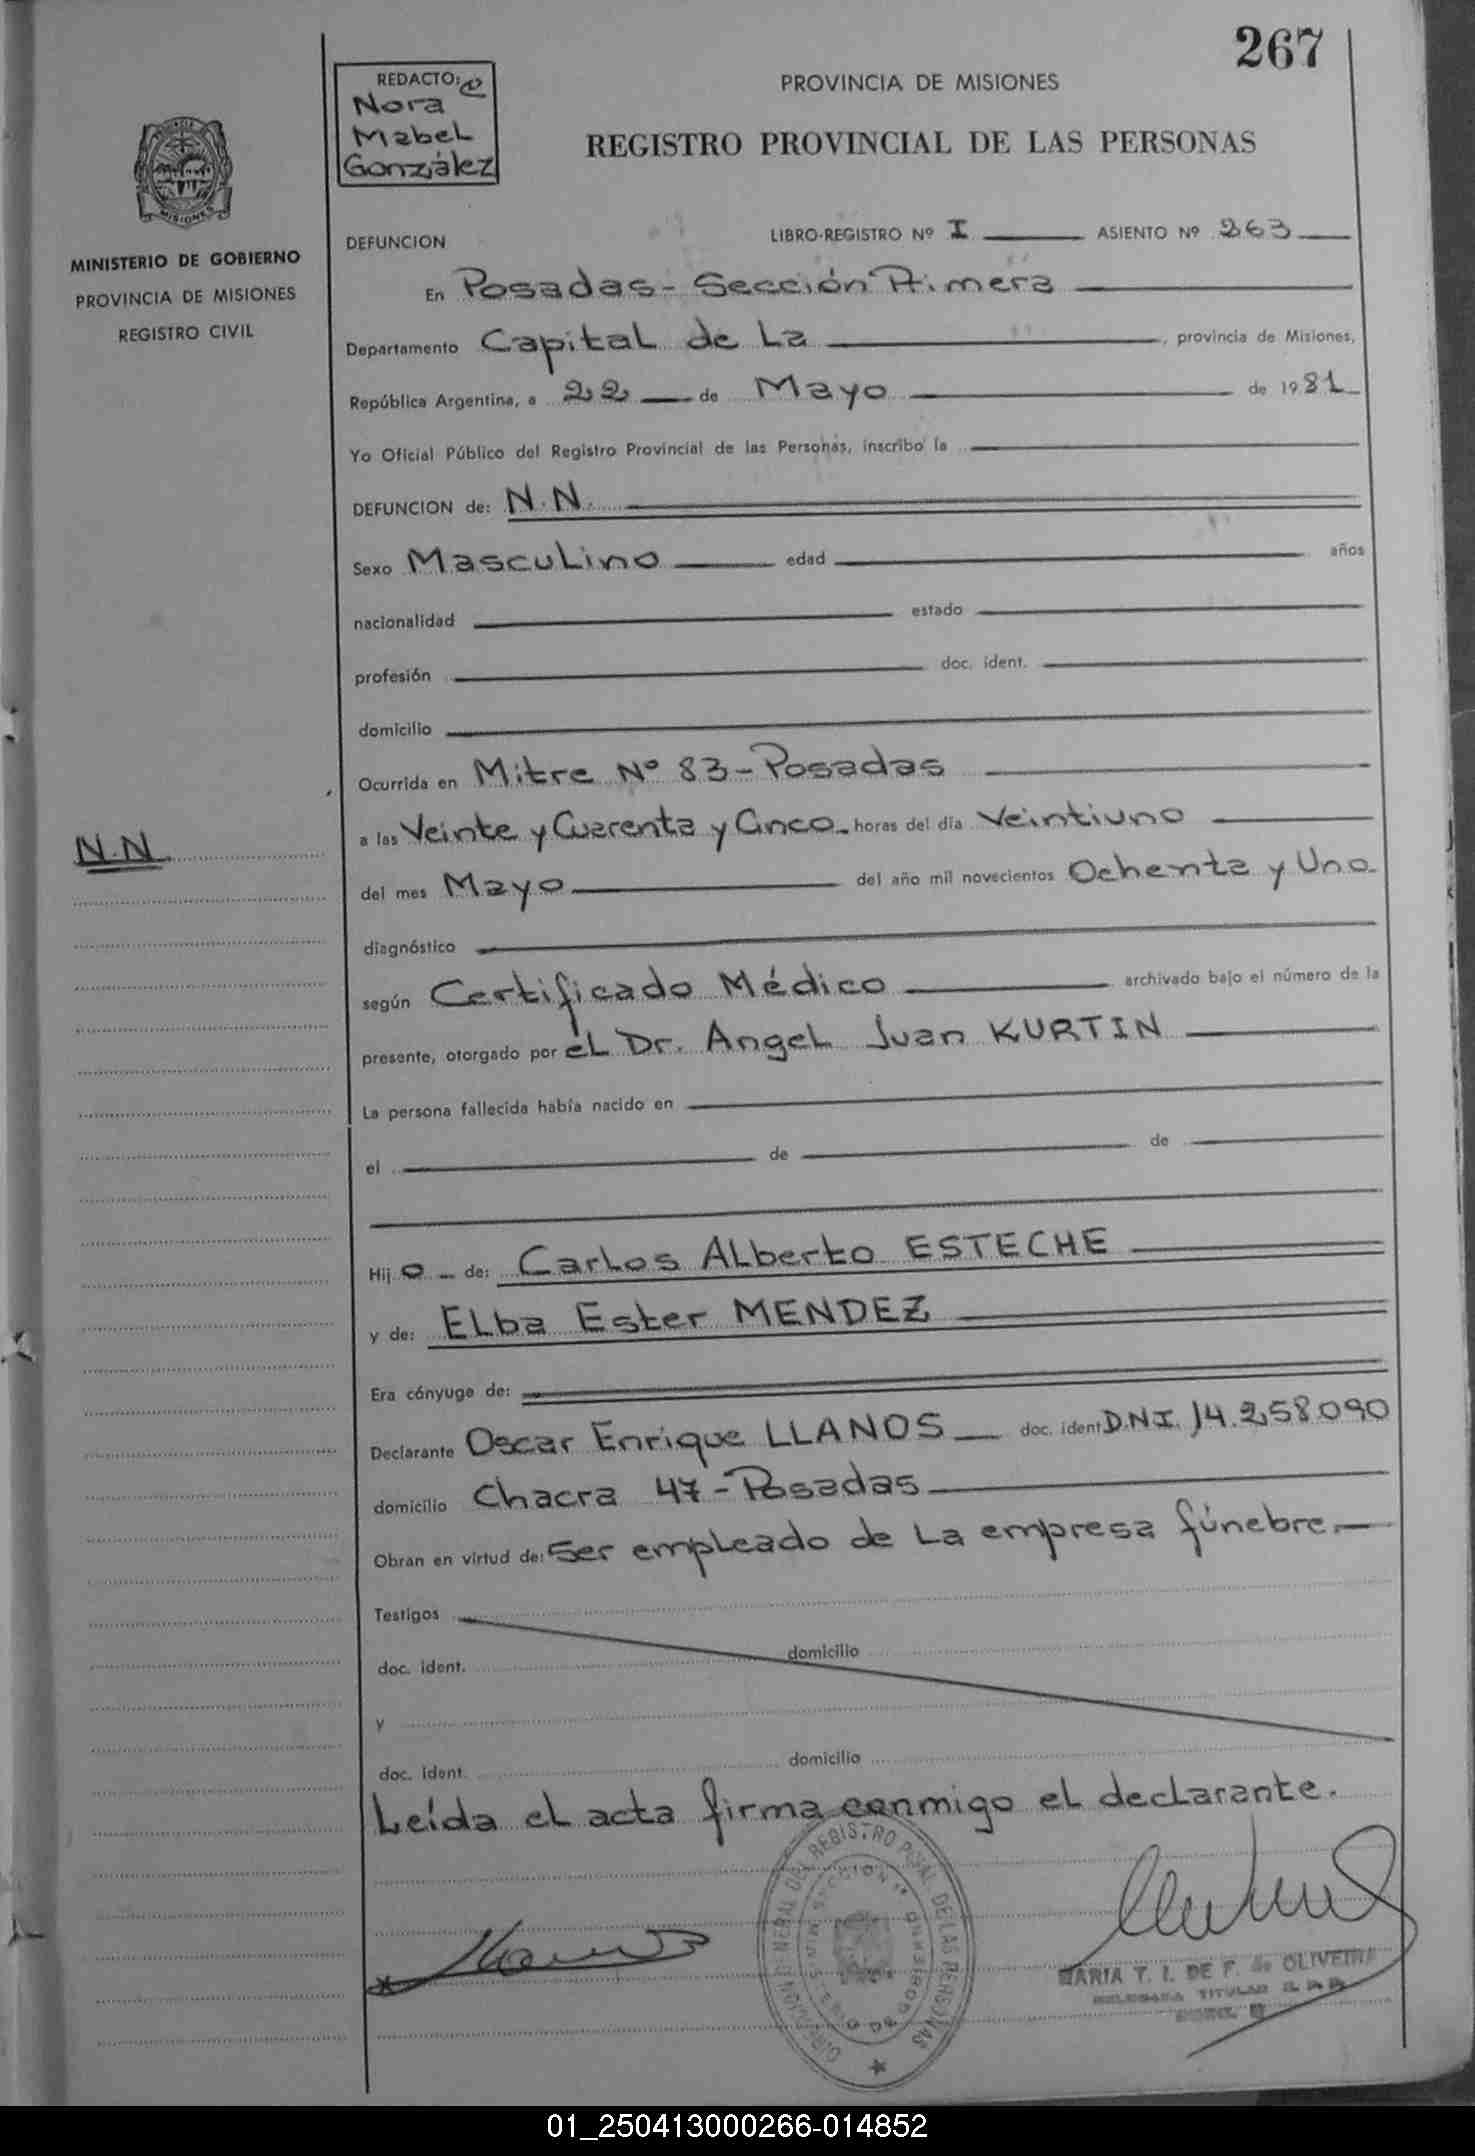 267
REDACTO:
Nora
Mabel
González
PROVINCIA DE MISIONES
REGISTRO PROVINCIAL DE LAS PERSONAS
MISIONES
MINISTERIO DE GOBIERNO
PROVINCIA DE MISIONES
REGISTRO CIVIL
DEFUNCION LIBRO-REGISTRO Nº I ASIENTO Nº 263
En Posadas- Sección Primera
Departamento Capital de La, provincia de Misiones,
República Argentina, a 22 de Mayo de 1981
Yo Oficial Público del Registro Provincial de las Personas, inscribo la
DEFUNCION de: N.N.
Sexo Masculino edad años
nacionalidad estado
profesión doc. ident.
domicilio
Ocurrida en Mitre Nº 83-Posadas
a las Veinte y Cuarenta y Cinco horas del día Veintiuno
N.N.
del mes Mayo del año mil novecientos Ochenta y Uno
diagnóstico
según Certificado Médico archivado bajo el número de la
presente, otorgado por el Dr. Angel Juan KURTIN
La persona fallecida había nacido en
el de de
Hijo de: Carlos Alberto ESTECHE
y de: Elba Ester MENDEZ
Era cónyuge de:
Declarante Oscar Enrique LLANOS doc. ident D.N.I. 14.258.090
domicilio Chacra 47-Posadas
Obran en virtud de: Ser empleado de la empresa fúnebre.
Testigos
doc. ident. domicilio
y
doc. ident. domicilio
Leída el acta firma conmigo el declarante.
MARIA T. I. DE F. de OLIVEIRA
01_250413000266-014852